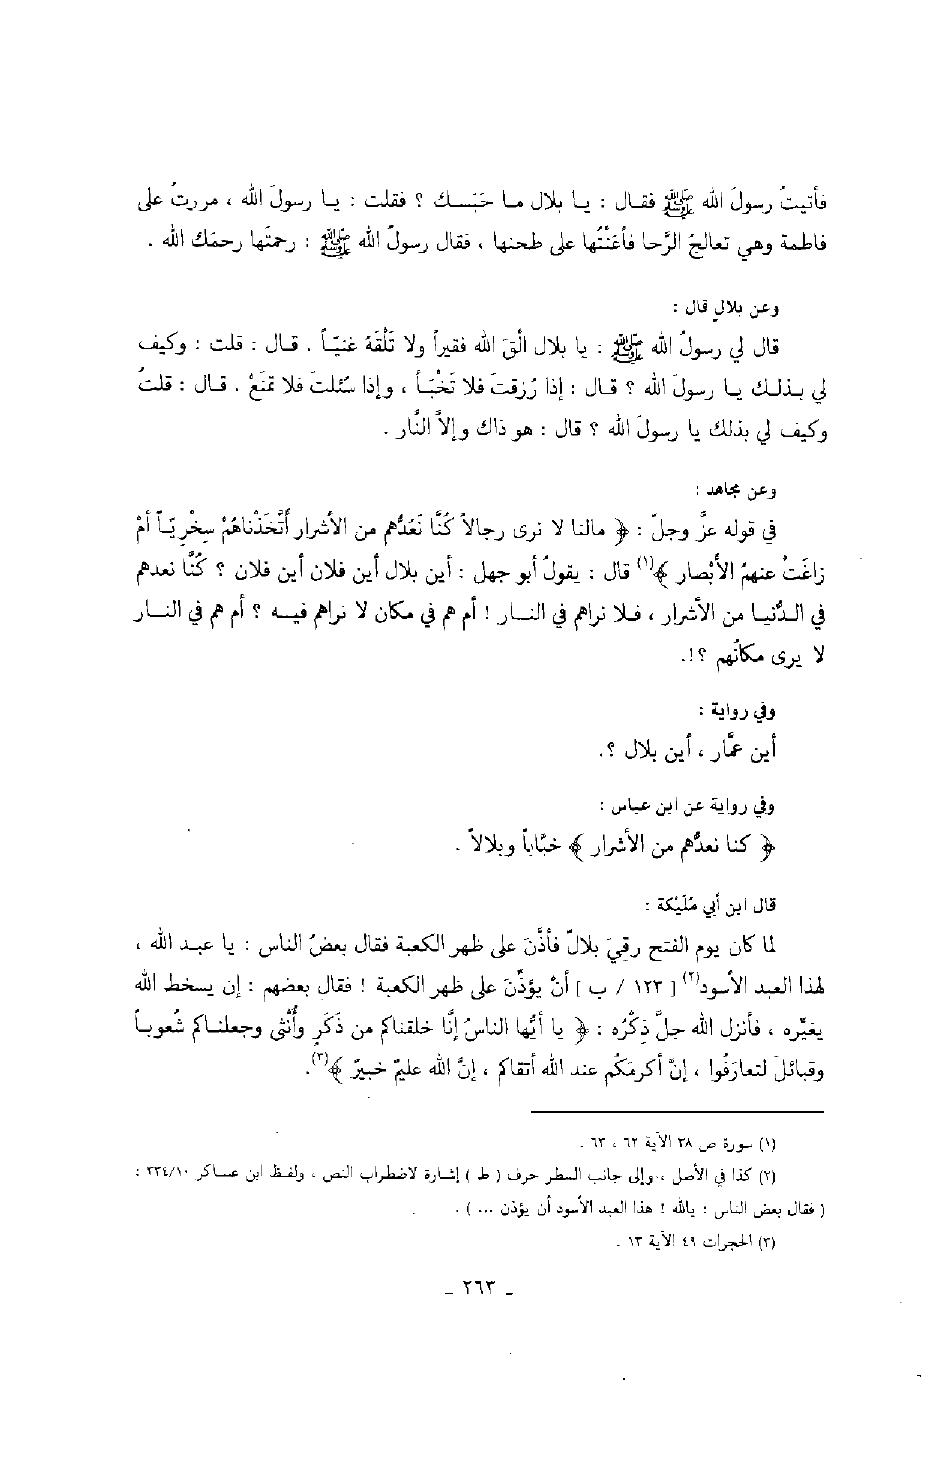 فأتيتُ رسولَ الله ﷺ فقـال : يـا بلال مـا حَبَسـك ؟ فقلت : يـا رسولَ الله ، مررتُ على
فاطمة وهي تعالجُ الرَّحا فأعَنْتُها على طحنها ، فقال رسولُ الله ﷺ : رحمتَها رحمَك الله .
وعن بلالٍ قال :
قال لي رسولُ الله ﷺ : يا بلال الْقَ الله فقيراً ولا تَلْقَهُ غنيّـاً . قـال : قلت : وكيف
لي بـذلـك يـا رسولَ الله ؟ قـال : إذا رُزقتَ فلا تَخْبَـأ ، وإذا سُئلتَ فلا تمنَعْ . قـال : قلتُ
وكيف لي بذلك يا رسولَ الله ؟ قال : هو ذاك وإلاَّ النَّار .
وعن مجاهد :
في قوله عزَّ وجلّ : ﴿ مالنا لا نرى رجالاً كُنَّا نَعُدُّهم من الأشرار أَتَّخَذْناهُمْ سِخْرِيّـاً أمْ
زاغَتْ عنهمُ الأبْصار ﴾(١) قال : يقولُ أبو جهل : أين بلال أين فلان أين فلان ؟ كُنَّا نعدهم
في الـدُّنيـا من الأشرار ، فـلا نراهم في النـار ! أم هم في مكان لا نراهم فيـه ؟ أم هم في النـار
لا يرى مكانُهم ؟!.
وفي رواية :
أين عمَّار ، أين بلال ؟.
وفي رواية عن ابن عباس :
﴿ كنا نعدُّهم من الأشرار ﴾ خبَّاباً وبلالاً .
قال ابن أبي مُلَيْكة :
لما كان يوم الفتح رقيَ بلالٌ فأذَّنَ على ظهر الكعبة فقال بعضُ الناس : يا عبـد الله ،
لهذا العبد الأسود(٢) [ ١٢٣ / ب ] أنْ يؤذّنَ على ظهر الكعبة ! فقال بعضهم : إن يسخط الله
يغيّره ، فأنزل الله جلَّ ذِكْرُه : ﴿ يا أيُّها الناسُ إنَّا خلقناكم من ذَكَرٍ وأُنْثى وجعلنـاكم شُعوبـاً
وقبائلَ لتعارَفُوا ، إنَّ أكرمَكُم عند الله أتقاكم ، إنَّ الله عليمٌ خبيرٌ ﴾(٣).
(١) سورة ص ٣٨ الآية ٦٢ ، ٦٣ .
(٢) كذا في الأصل ، وإلى جانب السطر حرف ( ط ) إشارة لاضطراب النص ، ولفـظ ابن عسـاكر ٣٣٤/١٠ :
( فقال بعض الناس : يالله ! هذا العبد الأسود أن يؤذن ... ) .
(٣) الحجرات ٤٩ الآية ١٣ .
ـ ٢٦٣ ـ